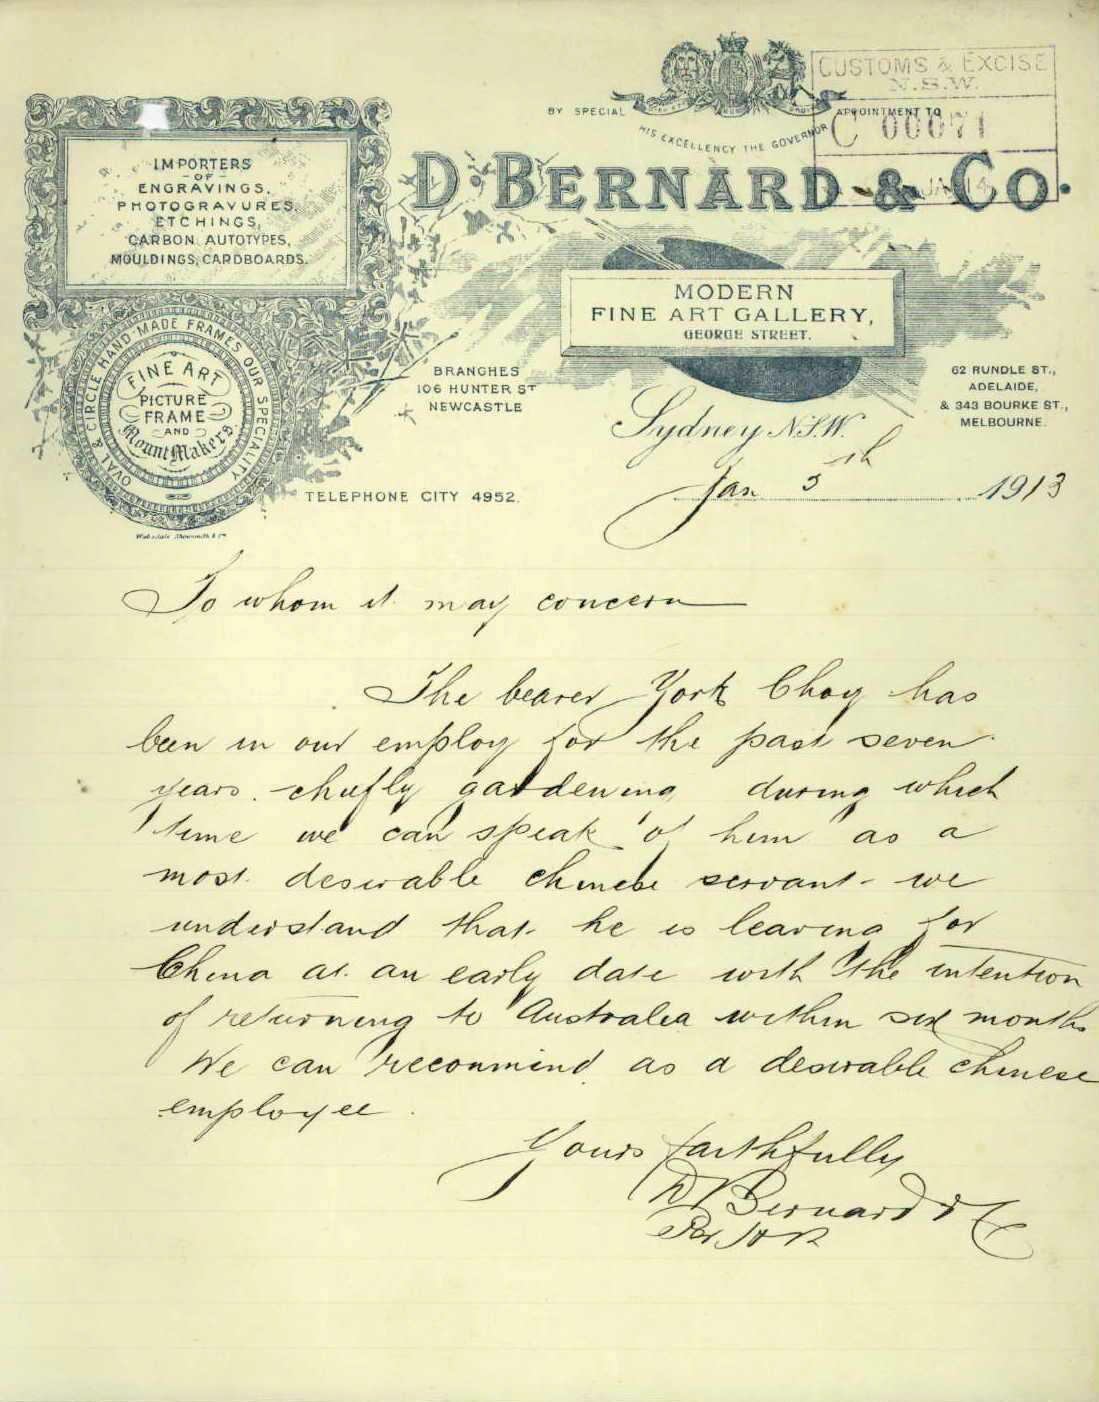 CUSTOMS & EXCISE
N.S.W.
C 00071
JAN 14
BY SPECIAL APPOINTMENT TO
HIS EXCELLENCY THE GOVERNOR
D. BERNARD & CO.
IMPORTERS
- OF -
ENGRAVINGS,
PHOTOGRAVURES,
ETCHINGS,
CARBON AUTOTYPES,
MOULDINGS, CARDBOARDS.
OVAL & CIRCLE HAND MADE FRAMES OUR SPECIALITY
FINE ART
PICTURE
FRAME
AND
Mount Makers.
MODERN
FINE ART GALLERY,
GEORGE STREET.
BRANCHES
106 HUNTER ST
NEWCASTLE
62 RUNDLE ST.,
ADELAIDE,
& 343 BOURKE ST.,
MELBOURNE.
Sydney N.S.W.
TELEPHONE CITY 4952.
Jan 5th 1913
To whom it may concern
The bearer York Choy has
been in our employ for the past seven
years. chiefly gardening during which
time we can speak of him as a
most desirable chinese servant - we
understand that he is leaving for
China at an early date with the intention
of returning to Australia within six months
We can reccommend as a desirable chinese
employee.
Yours faithfully
D Bernard & Co
Per